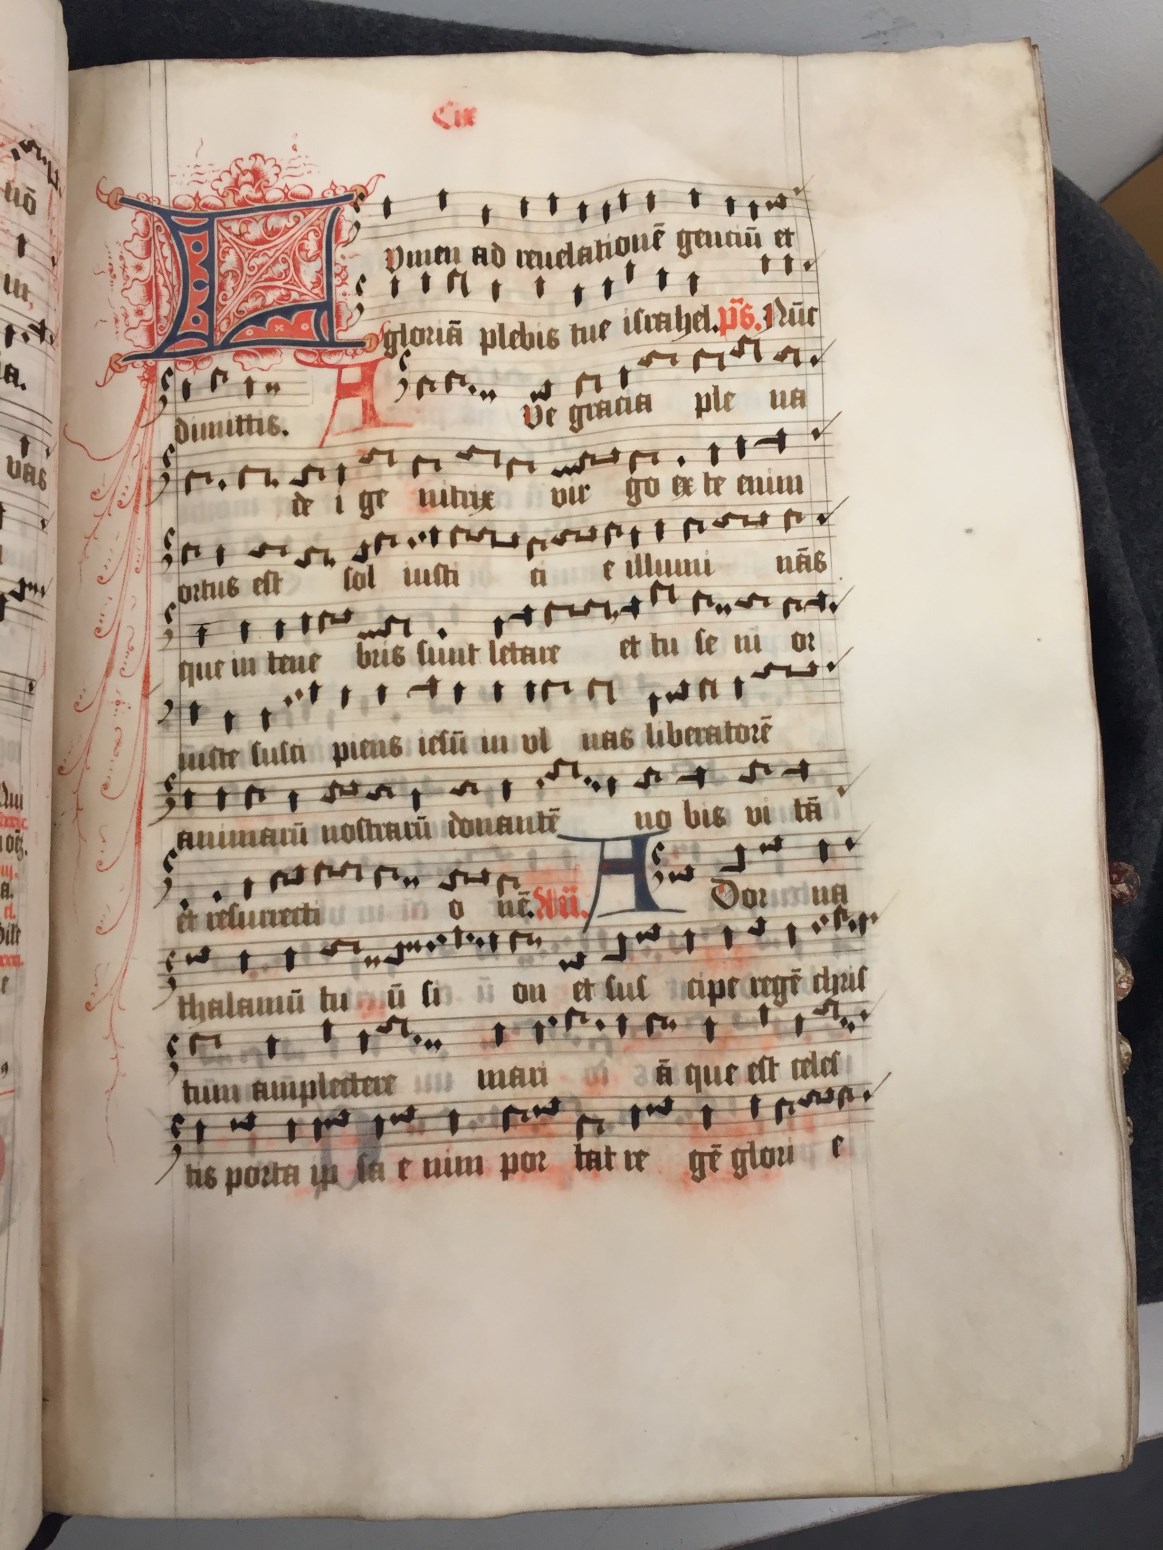 Cix
Lumen ad reuelationē genciū et
gloriā plebis tue israhel. ps. Nūc
dimittis. Aue gracia ple na
de i ge nitrix vir go ex te enim
ortus est sol iusti ci e illumi nās
que in tene bris sunt letare et tu se ni or
iuste susci piens iesū in vl nas liberatorē
animarū nostrarū donantē no bis vi tā
et resurrecti o nē. Ador na
thalamū tu ū si on et sus cipe regē chris
tum amplectere mari ā que est celes
tis porta ip sa e nim por tat re gē glori e